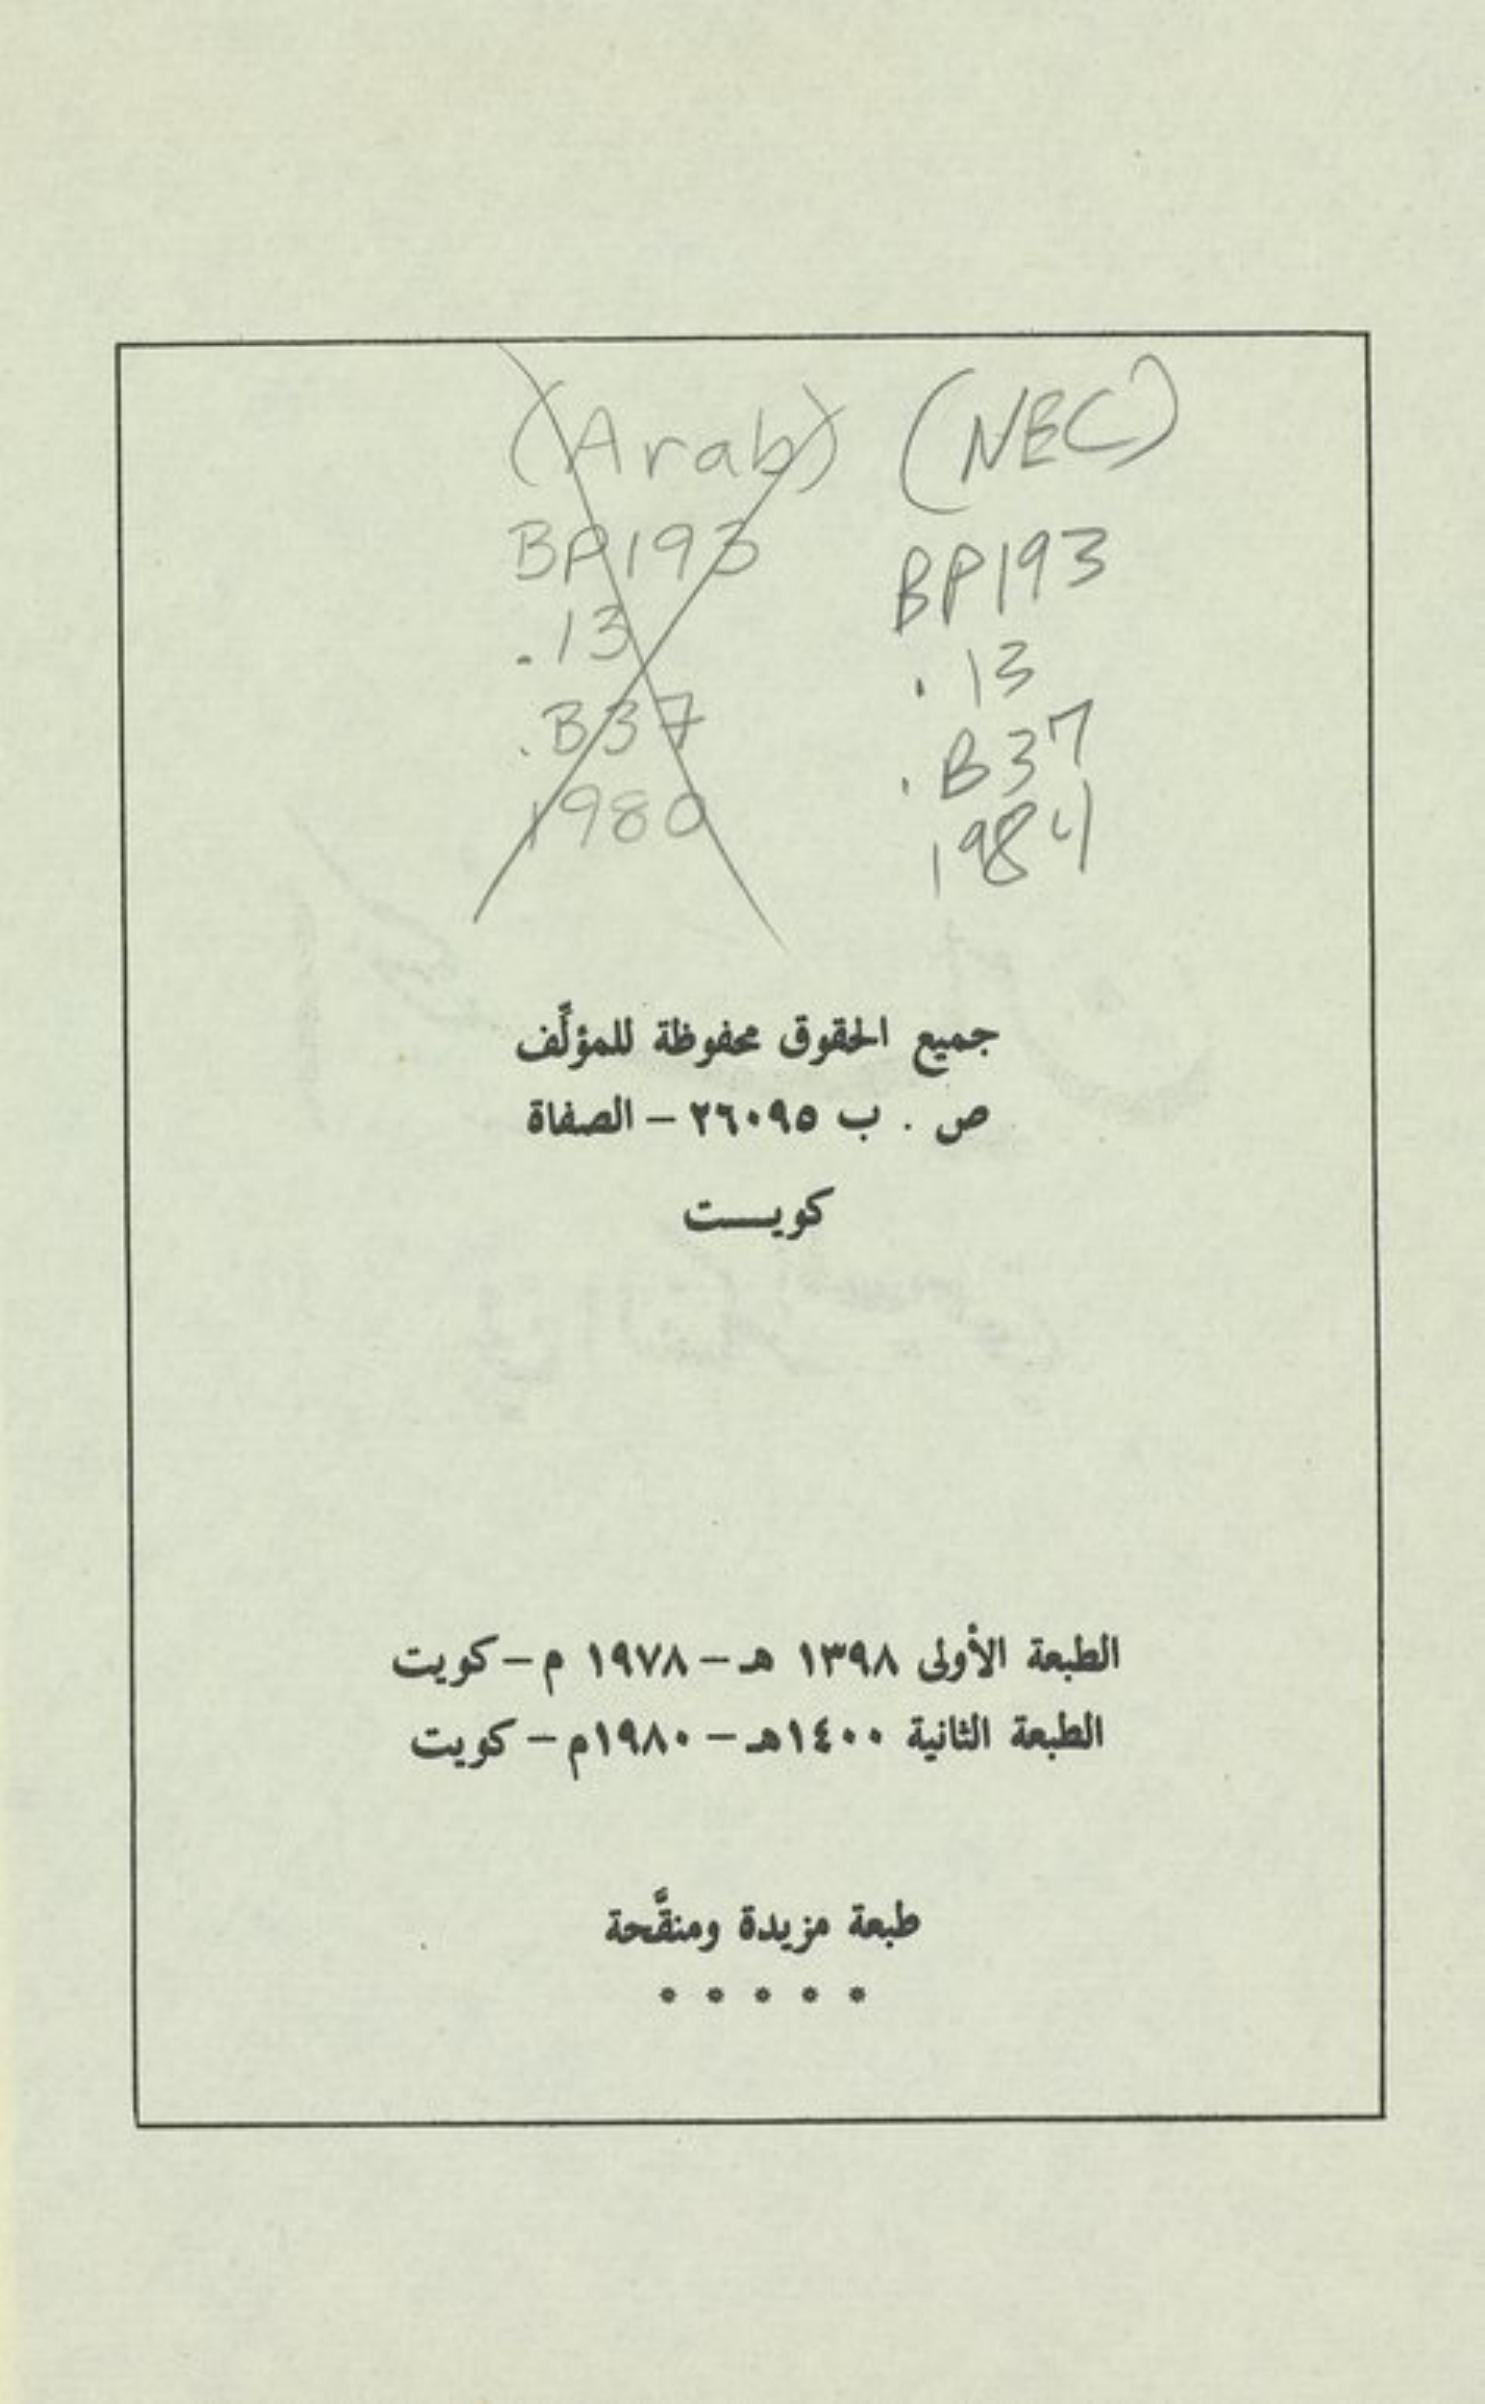 (Arab) (NEC)
BP193 BP193
.13 .13
.B37 .B37
1980 1984
جميع الحقوق محفوظة للمؤلَّف
ص . ب ٢٦٠٩٥ – الصفاة
كويـــت
الطبعة الأولى ١٣٩٨ هـ – ١٩٧٨ م – كويت
الطبعة الثانية ١٤٠٠هـ – ١٩٨٠م – كويت
طبعة مزيدة ومنقَّحة
* * * * *